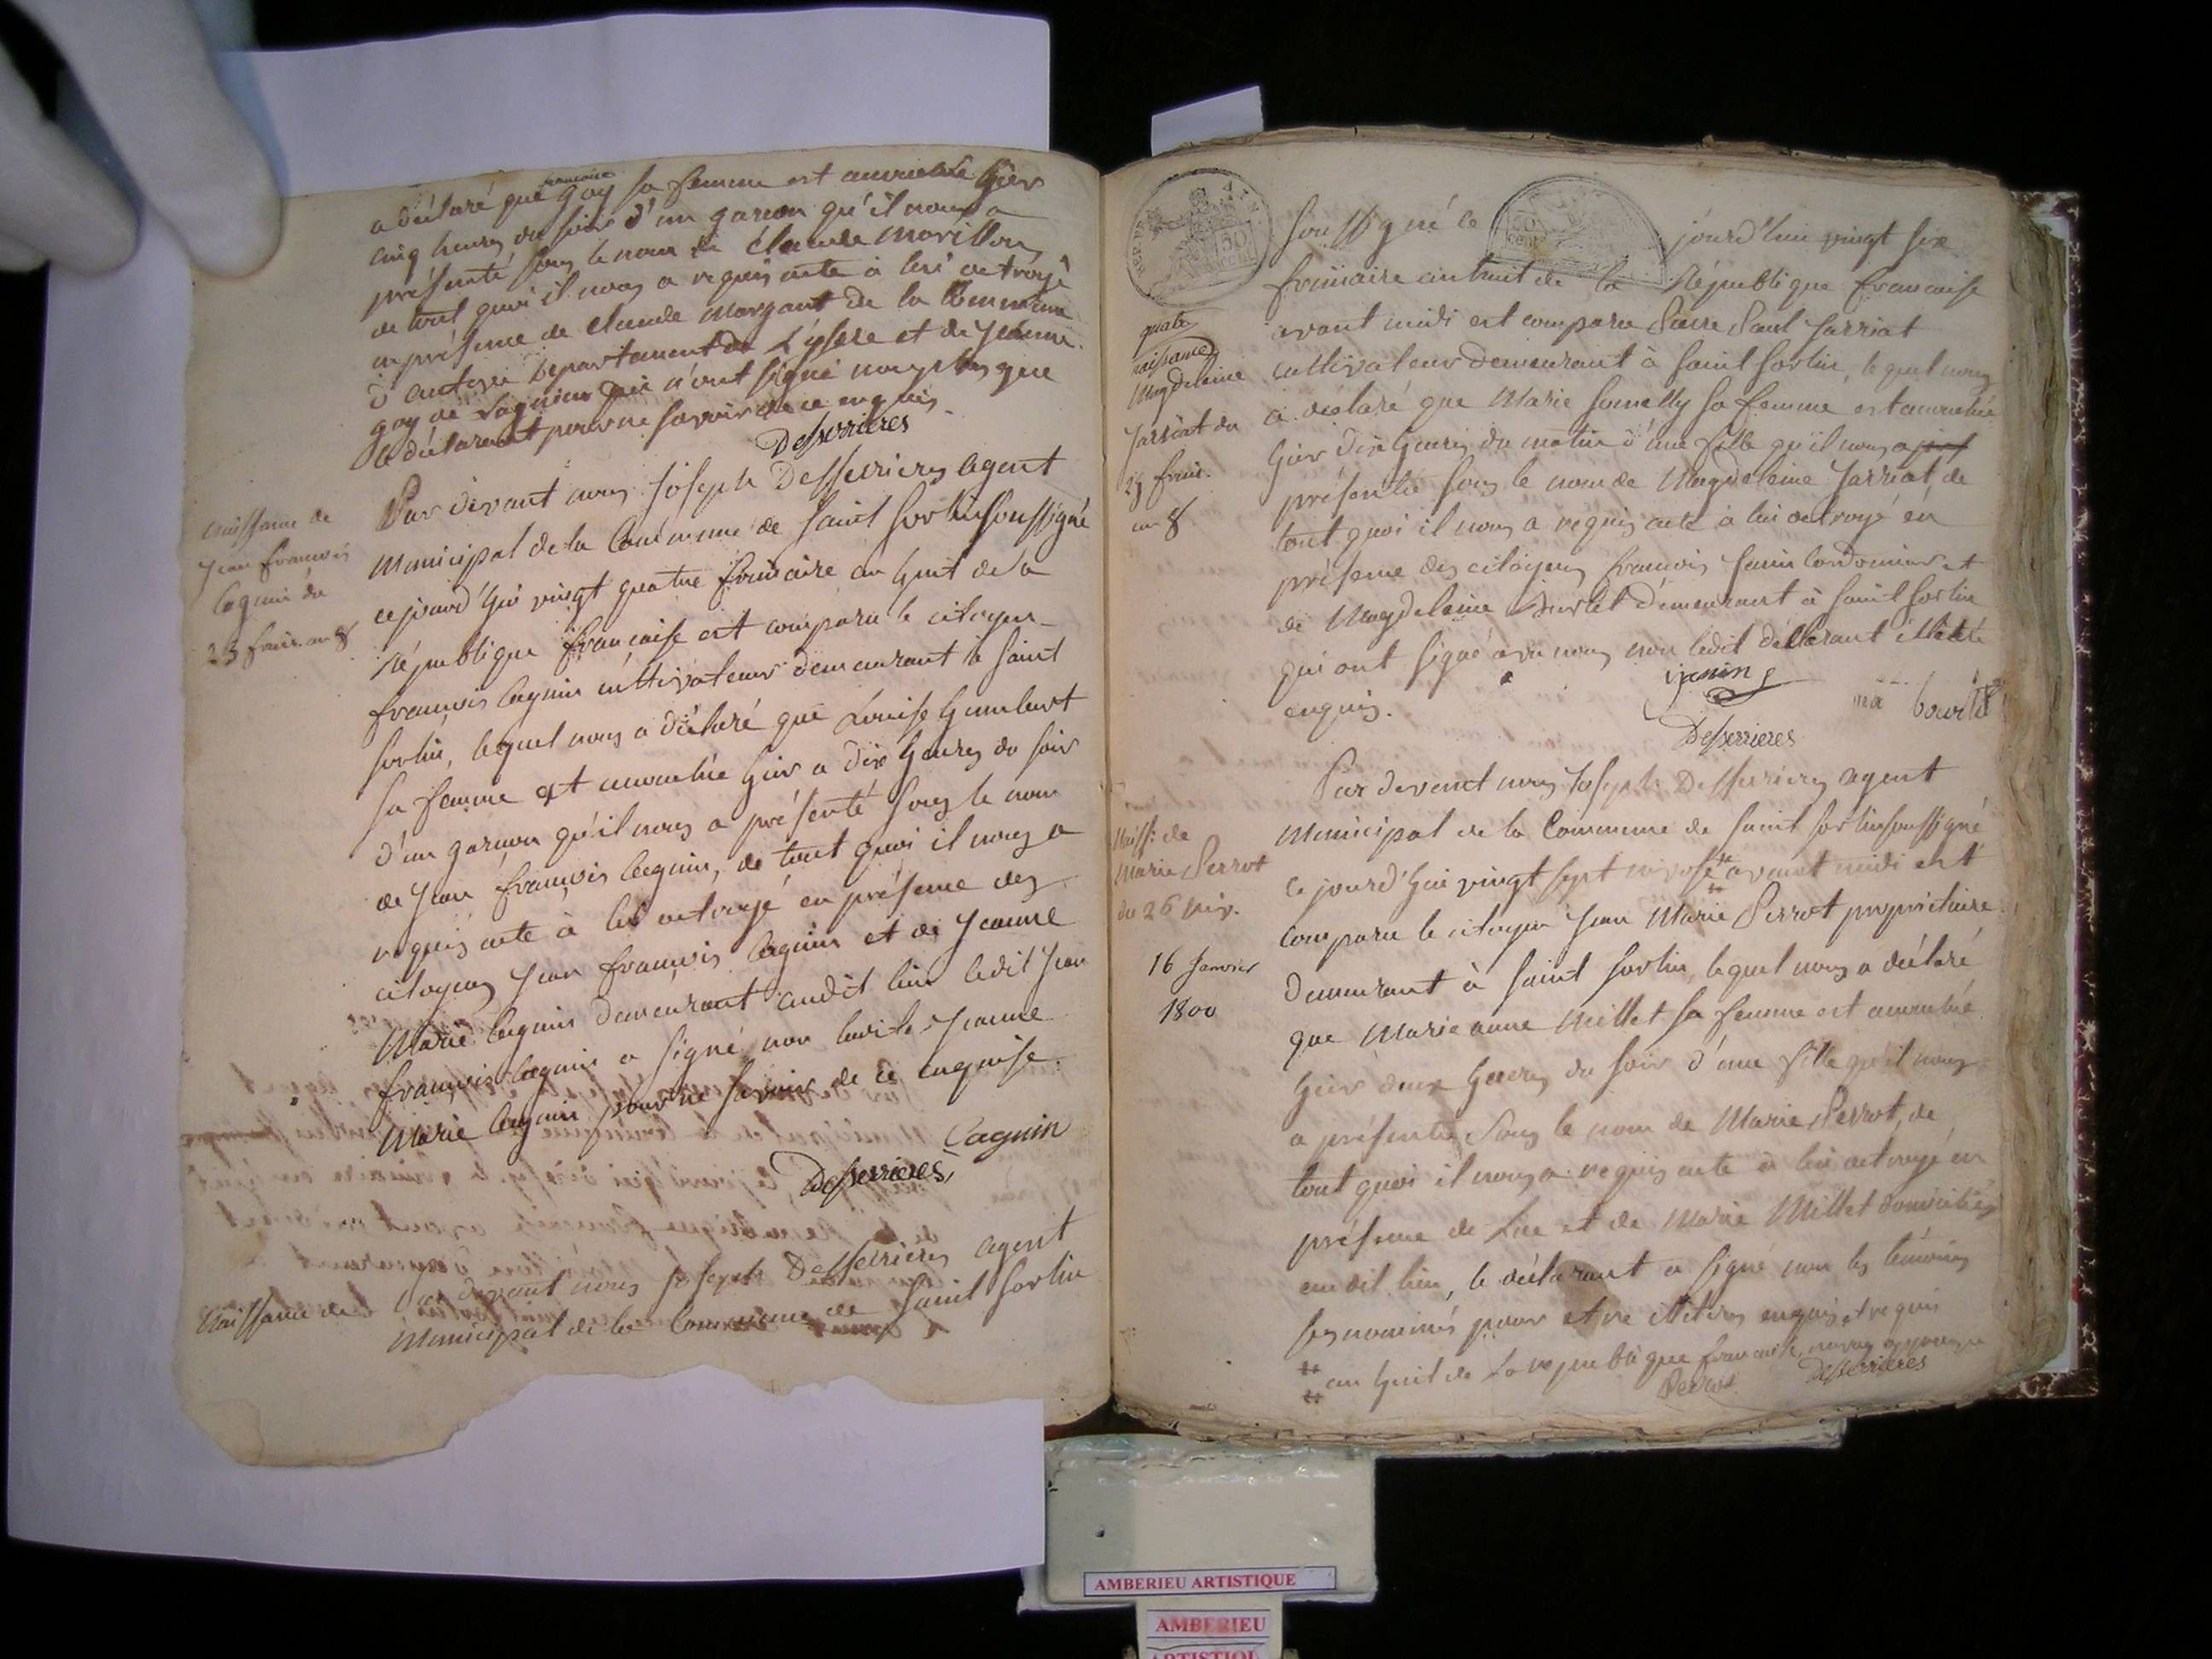 a déclaré que françoise goy sa femme est accouchée hier
cinq heures du soir d'un garcon qu'il nous a
présenté sous le nom de Claude Morillon,
de tout quoi il nous a requis acte à lui octroyé
en présence de Claude Morgant de la Commune
d' Département de L'ysère et de Jeanne
goy de Lagnieu qui n'ont signé non plus que
le déclarant pour ne savoir de ce enquis.
Desserrieres
naissance de
Jean françois
Cagnin du
23 frim. an 8
Par devant nous Joseph Desserrieres agent
Municipal de la Commune de saint sorlin soussigné
cejourd'hui vingt quatre frimaire an huit de la
République française est comparu le citoyen
françois Cagnin cultivateur demeurant à saint
sorlin, lequel nous a déclaré que Louise humbert
sa femme est accouchée hier a dix heures du soir
d'un garçon qu'il nous a présenté sous le nom
de Jean françois Cagnin, de tout quoi il nous a
requis acte à lui octroyé en présence des
citoyens Jean françois Cagnin et de Jeanne
Marie Cagnin demeurant audit lieu ledit Jean
françois Cagnin a signé non ladite Jeanne
Marie Cagnin pour ne savoir de ce enquise.
Cagnin
Desserrieres
Naissance de
Par devant nous Joseph Desserrieres agent
Municipal de la Commune de saint sorlin
50 cent
50 cent
soussigné ce jourd'hui vingt six
frimaire an huit de la République francaise
avant midi est comparu Pierre Paul Jarriat
cultivateur demeurant à saint sorlin, lequel nous
a déclaré que Marie sa femme est accouchée
hier dix heures du matin d'une fille qu'il nous a
présentée sous le nom de Magdeleine Jarriat, de
tout quoi il nous a requis acte à lui octroyé en
présence des citoyens francois Janin cordonnier et
de Magdeleine demeurant à saint sorlin
qui ont signé avec nous non ledit déclarant illitéré
enquis.
naissance
Magdeleine
Jarriat du
25 frim.
an 8
janin
Desserrieres
Naiss. de
Marie Perrot
du 26 niv.
16 Janvier
1800
Par devant nous Joseph Desserrieres agent
Municipal de la Commune de saint sorlin soussigné
ce jourd'hui vingt sept nivose avant midi est
comparu le citoyen Jean Marie Perrot propriétaire
demeurant à saint sorlin, lequel nous a déclaré
que Marie anne Millet sa femme est accouchée
hier deux heures du soir d'une fille qu'il nous
a présentée sous le nom de Marie Perrot, de
tout quoi il nous a requis acte à lui octroyé en
présence de Luc et de Marie Millet domiciliés
audit lieu, le déclarant a signé non les témoins
sesnommés pour etre illitérés enquis et requis
an huit de la république francaise
Perrot Desserrieres
AMBERIEU ARTISTIQUE
AMBERIEU
ARTISTIQUE